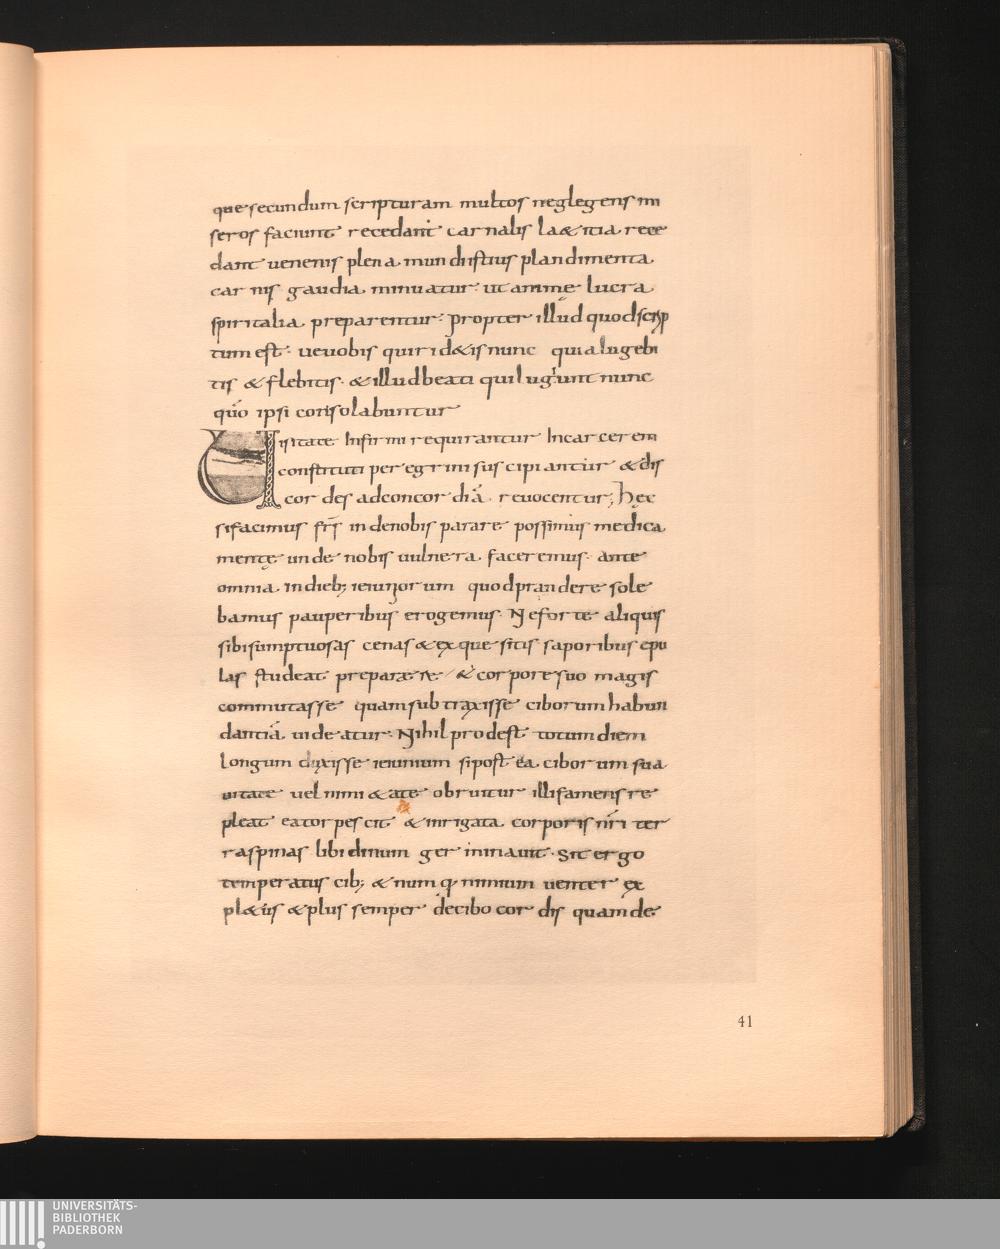 que secundum scripturam multos neglegens mi
seros faciunt recedant carnalis laetitia rece
dant uenenis plena mundi istius plandimenta
carnis gaudia minuatur ut animę lucra
spiritalia preparentur. Propter illud quod scrip
tum est. ue uobis qui ridetis nunc quia lugebi
tis & flebitis. & illud beati qui lugunt nunc
qūo ipsi consolabuntur
Uisitate Infirmi requirantur Incarcerem
constituti peregrini suscipiantur & dis
cordes ad concordiā reuocentur; Hęc
si facimus frs̄ inde nobis parare possimus medica
mentę unde nobis uulnera faceremus. ante
omnia in dieb; ieiuniorum quod prandere sole
bamus pauperibus erogemus. Ne forte aliquis
sibi sumptuosas cenas & exquesitis saporibus epu
las studeat preparare & corpore suo magis
commutasse quam subtraxisse ciborum habun
dantiā uideatur. Nihil prodest totum diem
longum duxisse ieiunium si post ea ciborum sua
uitate uel nimi&ate obruitur illis a mens re
pleat ea torpescit & inrigata corporis nr̄i ter
ra spinas libidinum germinauit. Sit ergo
temperatus cib; & numq nimium uenter ex
pl&iis & plus semper de cibo cordis quam de
41
UNIVERSITÄTS-
BIBLIOTHEK
PADERBORN